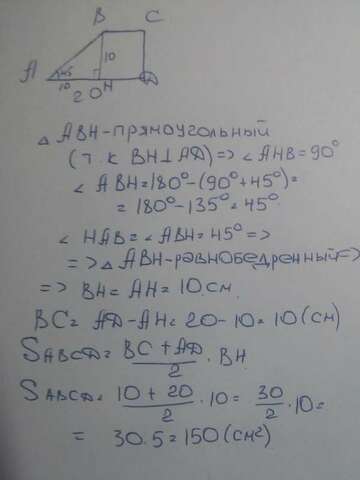 B C
A 45 10
10 H
20
△ ABH-прямоугольный
(т.к BH⊥AD)=> ∠AHB=90°
∠ ABH=180°-(90°+45°)=
= 180°-135°=45°
∠ HAB=∠ABH=45° =>
=>△ ABH-равнобедренный=>
=> BH=AH=10см
BC= AD-AH=20-10=10(см)
SABCD= BC+AD/2 · BH
SABCD= 10+20/2 · 10= 30/2 · 10=
= 30·5=150(см²)